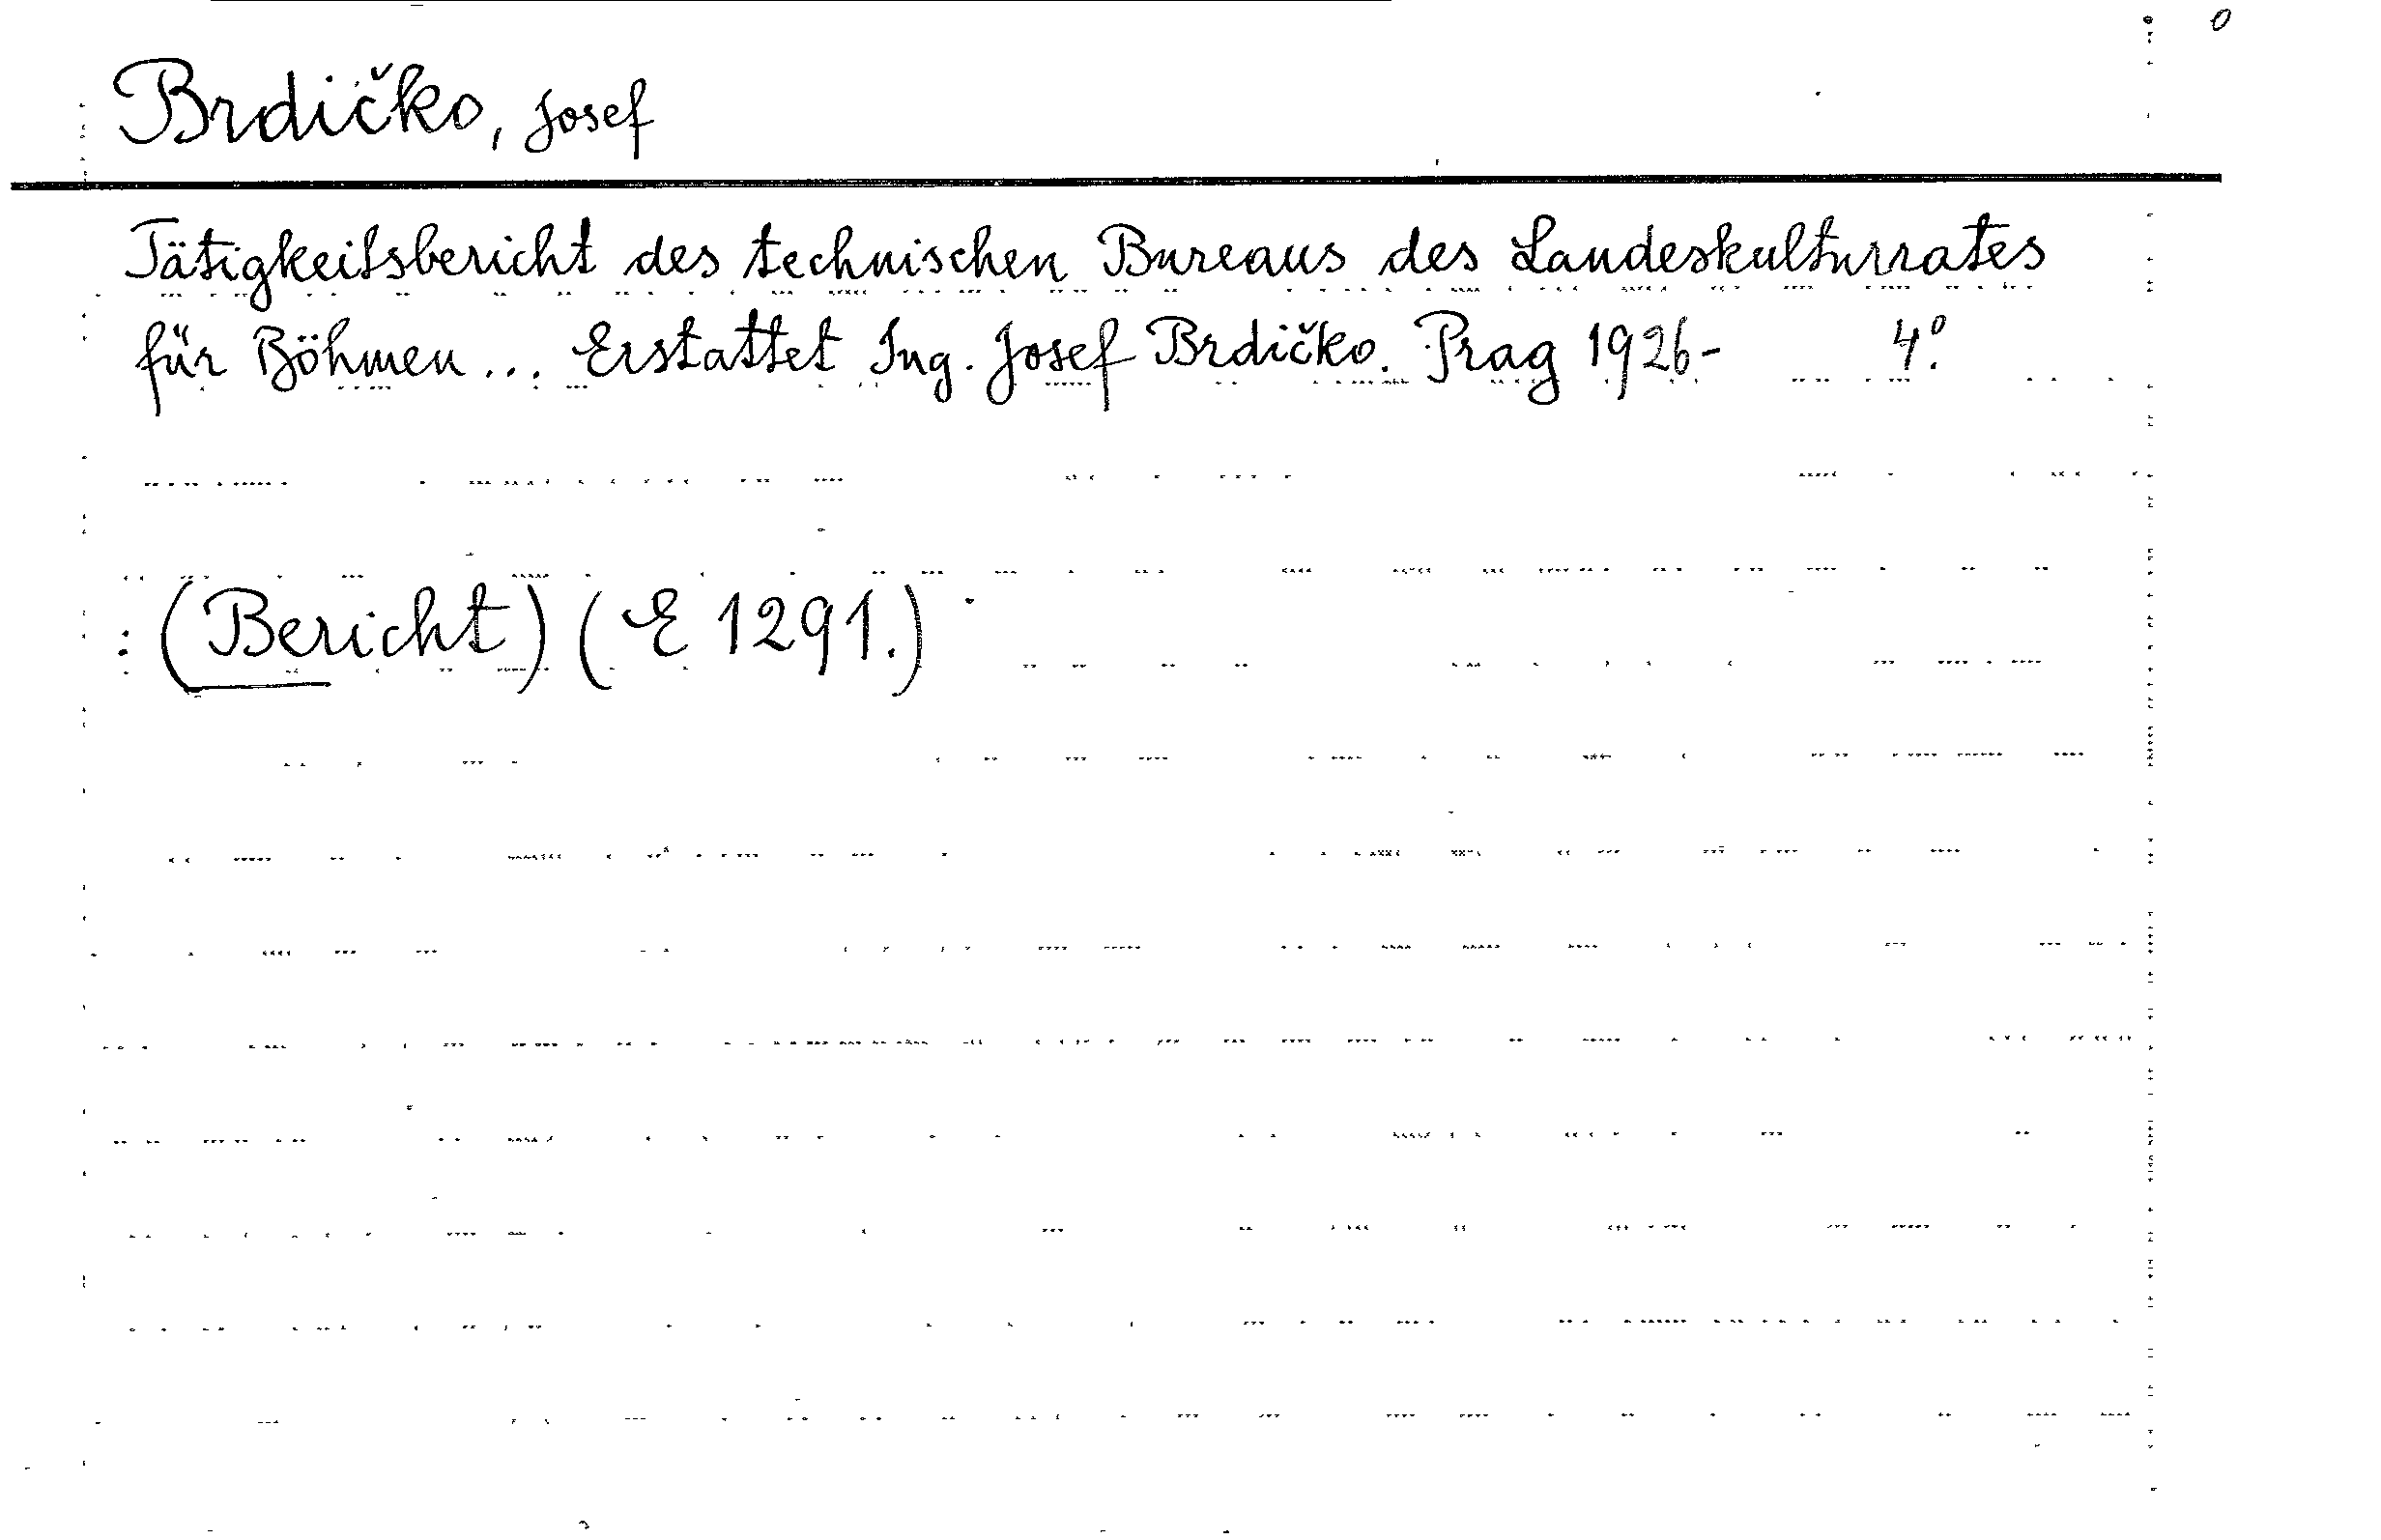 Brdičko, Josef
Tätigkeitsbericht des technischen Bureaus des Landeskulturrates
für Böhmen... Erstattet Ing. Josef Brdičko. Prag 1926- 4º.
: (Bericht) (E 1291.)